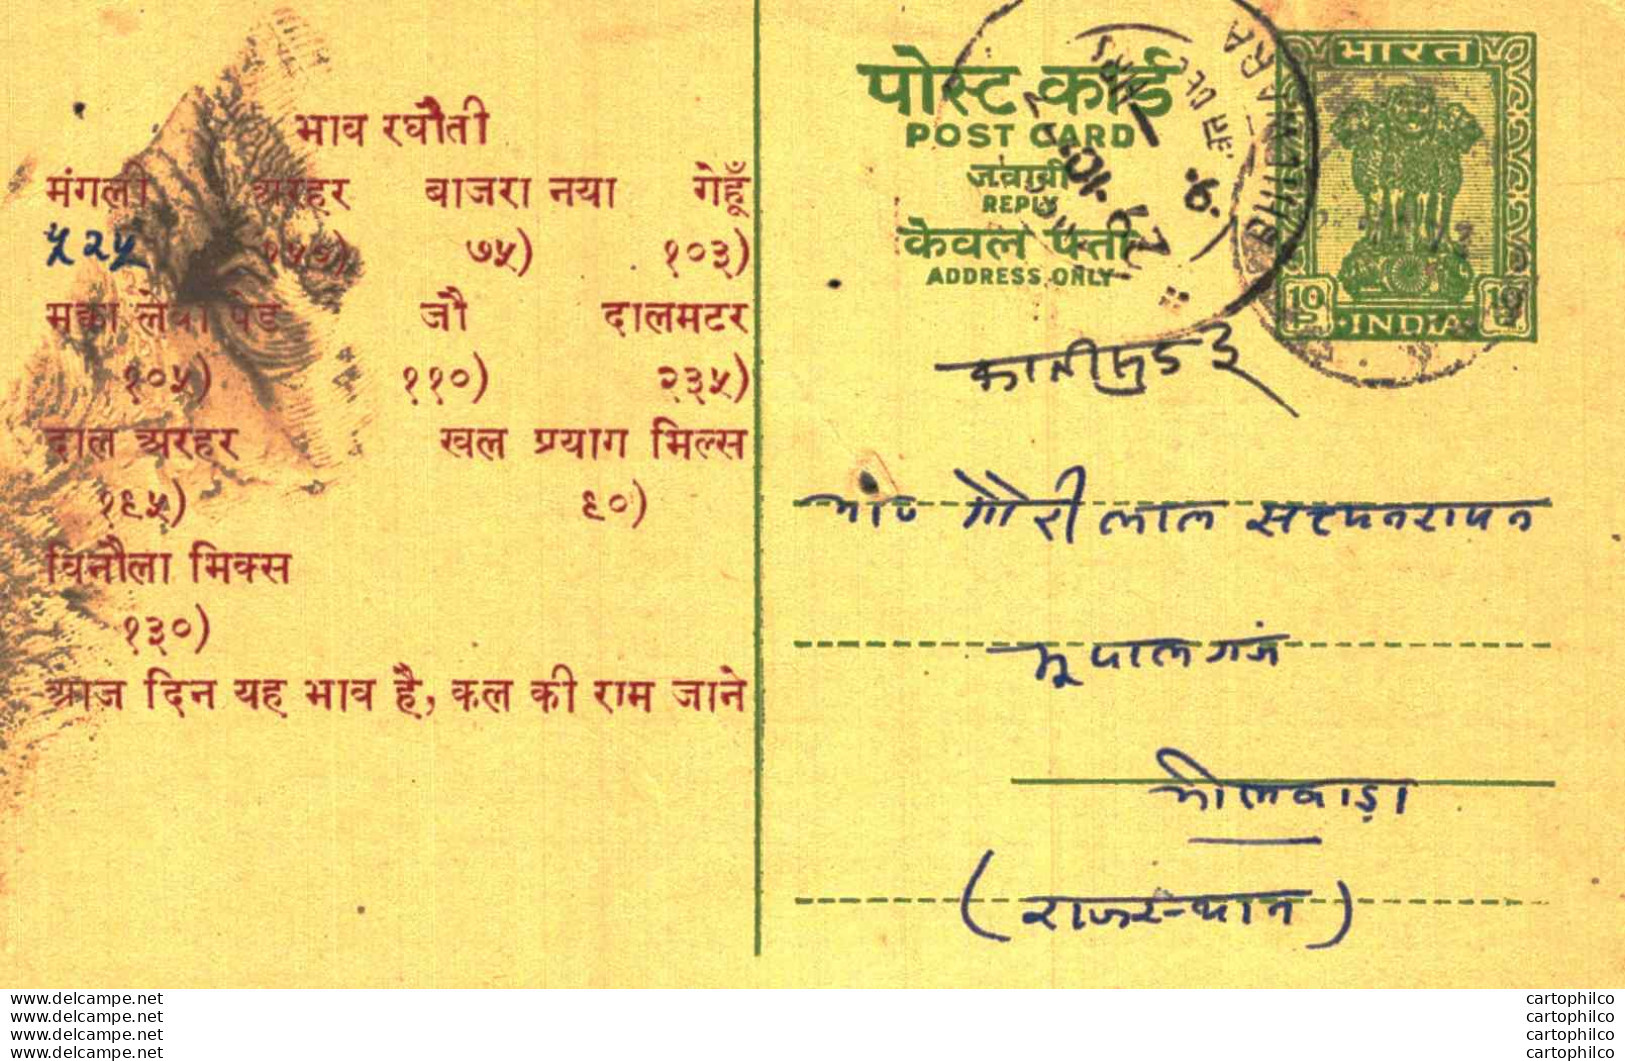 भाव रघौती
मंगली अरहर बाजरा नया गेहूँ
५२५ ७५) १०३)
मक्का लेवा पेडे जौ दालमटर
१०५) ११०) २३५)
दाल अरहर खल प्रयाग मिल्स
१९५) ९०)
विनौला मिक्स
१३०)
आज दिन यह भाव है, कल की राम जाने
पोस्ट कार्ड
POST CARD
जवाबी
REPLY
केवल पता
ADDRESS ONLY
भारत
10 10
INDIA
BHILWARA
गौरी लाल सत्यनरायन
भूपालगंज
भीलवाड़ा
(राजस्थान)
www.delcampe.net
www.delcampe.net
www.delcampe.net
www.delcampe.net
cartophilco
cartophilco
cartophilco
cartophilco